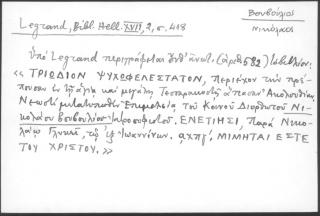 Legrand, Bibl. Hell. XVII, 2, σ. 418
Βουβούλιος
Νικόλαος
Ὑπὸ Legrand περιγράφεται ὑπ' ἀριθ. (ἀριθ 582) τὸ βιβλίον:
« ΤΡΙΩΔΙΟΝ ΨΥΧΩΦΕΛΕΣΤΑΤΟΝ, περιέχον τὴν πρέ-
πουσαν ἐν τῇ ἁγίᾳ καὶ μεγάλῃ Τεσσαρακοστῇ ἅπασαν Ἀκολουθίαν,
Νεωστὶ μετατυπωθὲν Ἐπιμελείᾳ τοῦ Κοινοῦ Διορθωτοῦ Νι-
κολάου Βουβουλίου Ἱεροσοφίτου. ΕΝΕΤΙΗΣΙ, παρὰ Νικο-
λάῳ Γλυκεῖ τῷ ἐξ Ἰωαννίνων. αχπγ΄. ΜΙΜΗΤΑΙ ΕΣΤΕ
ΤΟΥ ΧΡΙΣΤΟΥ. »